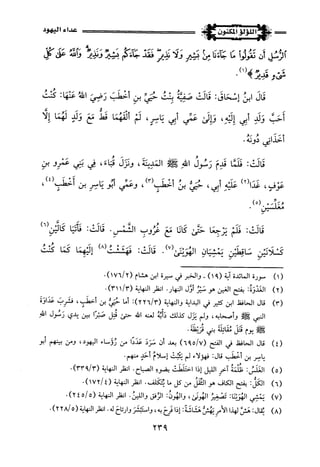 اللؤلؤ المكنون
عداء اليهود
الرُّسُلِ أَن تَقُولُوا مَا جَاءَنَا مِنۢ بَشِيرٍ وَلَا نَذِيرٍ فَقَدْ جَاءَكُم بَشِيرٌ وَنَذِيرٌ وَاللَّهُ عَلَىٰ كُلِّ
شَيْءٍ قَدِيرٌ﴾(١).
قَالَ ابنُ إِسْحَاقَ: قَالَتْ صَفِيَّةُ بِنْتُ حُيَيِّ بنِ أَخْطَبَ رَضِيَ اللهُ عَنْهَا: كُنْتُ
أَحَبَّ وَلَدِ أَبِي إِلَيْهِ، وَإِلَى عَمِّي أَبِي يَاسِرٍ، لَمْ أَلْقَهُمَا قَطُّ مَعَ وَلَدٍ لَهُمَا إِلَّا
أَخَذَانِي دُونَهُ.
قَالَتْ: فَلَمَّا قَدِمَ رَسُولُ اللهِ ﷺ المَدِينَةَ، وَنَزَلَ قُبَاءَ، فِي بَنِي عَمْرِو بنِ
عَوْفٍ، غَدَا(٢) عَلَيْهِ أَبِي، حُيَيُّ بنُ أَخْطَبَ(٣)، وَعَمِّي أَبُو يَاسِرِ بن أَخْطَبَ(٤)،
مُغَلِّسَيْنِ(٥).
قَالَتْ: فَلَمْ يَرْجِعَا حَتَّى كَانَا مَعَ غُرُوبِ الشَّمْسِ. قَالَتْ: فَأَتَيَا كَالَّيْنِ(٦)
كَسْلَانَيْنِ سَاقِطَيْنِ يَمْشِيَانِ الهُوَيْنَى(٧). قَالَتْ: فَهَشَشْتُ(٨) إِلَيْهِمَا كَمَا كُنْتُ
(١) سورة المائدة آية (١٩) ــ والخبر في سيرة ابن هشام (١٧٦/٢).
(٢) الغُدْوَةُ: بفتح الغين هو سَيْرُ أول النهار. انظر النهاية (٣١١/٣).
(٣) قال الحافظ ابن كثير في البداية والنهاية (٢٢٦/٣): أما حُيَيُّ بن أخطب، فشَرِبَ عَدَاوَةَ
النبي ﷺ وأصحابه، ولم يزل كذلك دأبُهُ لعنه الله حتى قُتِل صَبْرًا بين يدي رسول الله
ﷺ يوم قَتْلِ مُقَاتِلَةِ بني قُرَيْظَةَ.
(٤) قال الحافظ في الفتح (٦٩٥/٧) بعد أن سَرَدَ عَدَدًا من رُؤَساءِ اليهودِ، ومن بينهم أبو
ياسر بن أخطب قال: فهؤلاء لم يَثْبُت إسلامُ أحَدٍ منهم.
(٥) الغَلَسُ: ظُلْمَةُ آخرِ الليلِ إذا اختلَطَتْ بضوء الصباح. انظر النهاية (٣٣٩/٣).
(٦) الكَلُّ: بفتح الكاف هو الثِّقْلُ من كل ما يُتَكَلَّف. انظر النهاية (١٧٢/٤).
(٧) يَمْشِي الهُوَيْنَا: تَصْغِيرُ الهُونَى، والهُونُ: الرفق واللين. انظر النهاية (٢٤٥/٥).
(٨) يُقال: هَشَّ لهذا الأمرِ يَهُشُّ هَشَاشَةً: إذا فَرِحَ به، واستَبْشَرَ وارتاحَ له. النهاية (٢٢٨/٥).
٢٣٩